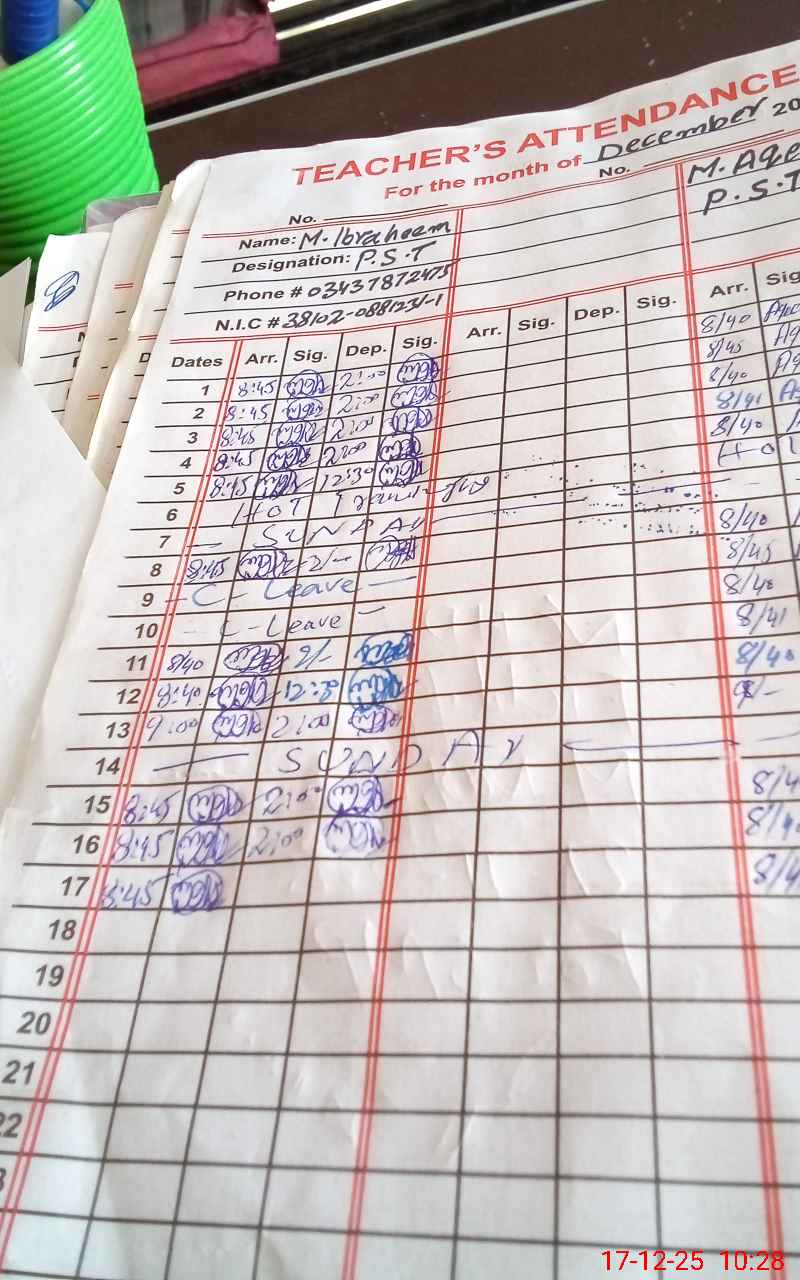 TEACHER'S ATTENDANCE
For the month of December 20
No. No.
Name: M. Ibraheem M. Aqe
Designation: P.S.T P.S.T
Phone # 03437872475
N.I.C # 38102-
Dates Arr. Sig. Dep. Sig. Arr. Sig. Dep. Sig. Arr. Sig
1 8:45 2:00 8/40
2 8:45 2:00 8/45
3 8:45 2:00 8/40
4 8:45 2:00 8/41
5 8:45 12:30 8/40
6 HOT
7 — SUNDAY
8 8:45 2/- 8/40
9 - C - Leave — 8/45
10 - C - Leave - 8/40
11 8/40 2/- 8/41
12 8:40 8/40
13 9:00 2:00
14 — SUNDAY —
15 8:45 2:00 8/4
16 8:45 2:00 8/4
17 8:45 8/4
18
19
20
21
22
17-12-25 10:28